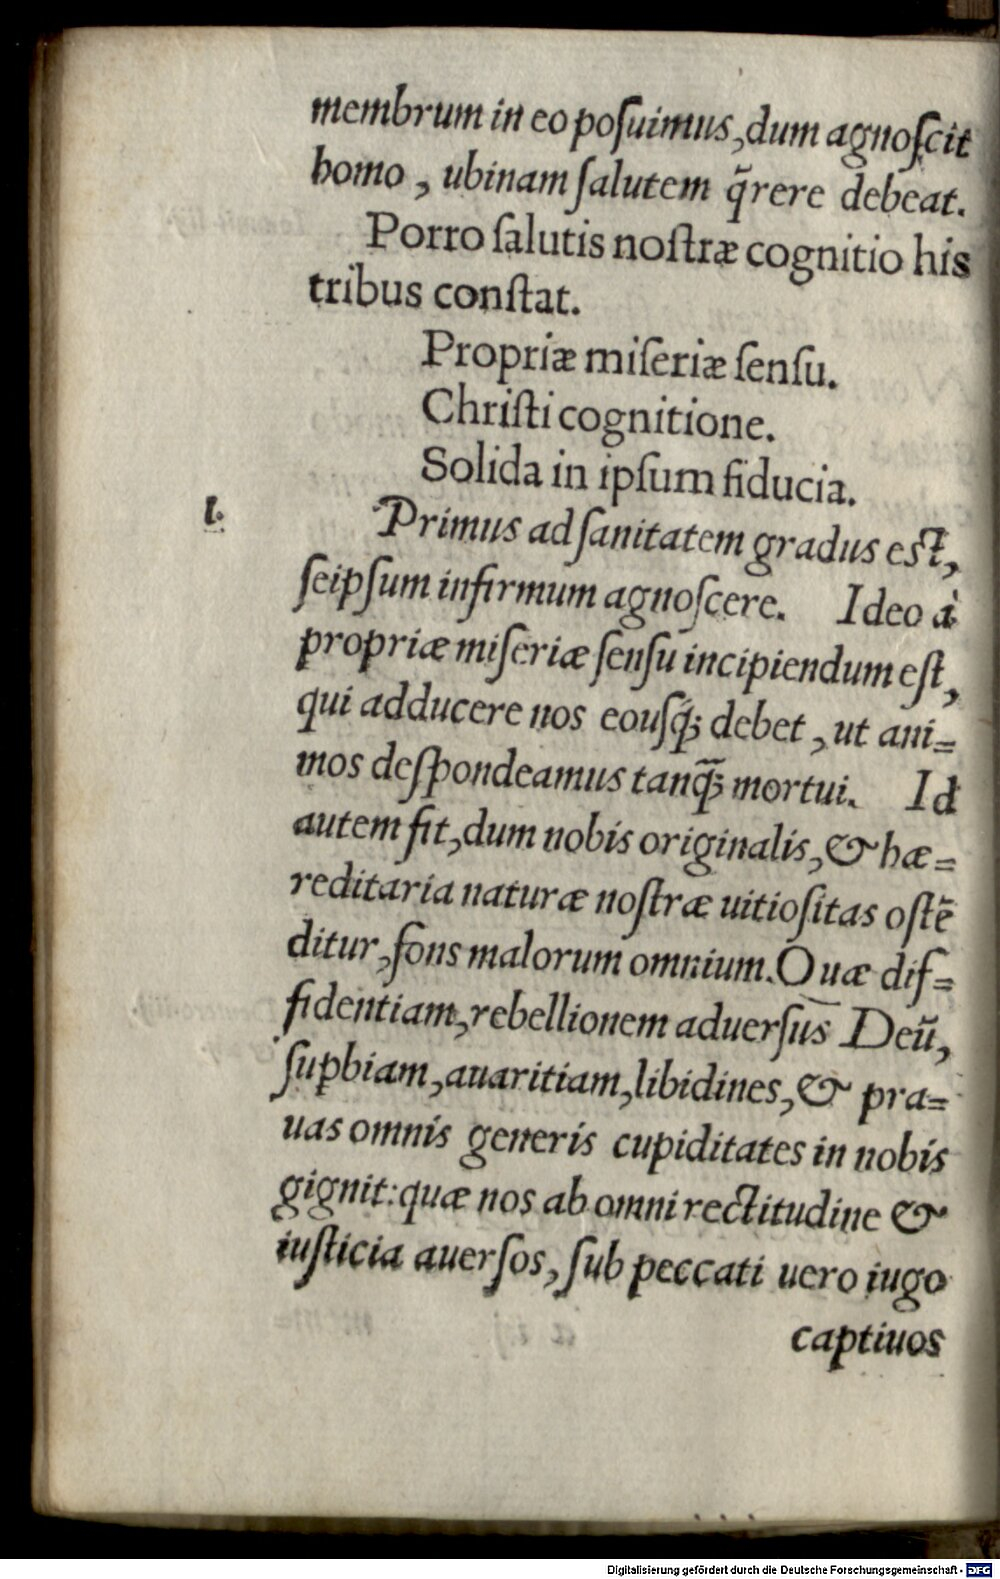 membrum in eo poſuimus, dum agnoſcit
homo, ubinam ſalutem q̃rere debeat.
Porro ſalutis noſtræ cognitio his
tribus conſtat.
Propriæ miſeriæ ſenſu.
Chriſti cognitione.
Solida in ipſum fiducia.
I. Primus ad ſanitatem gradus eſt,
ſeipſum infirmum agnoſcere. Ideo à
propriæ miſeriæ ſenſu incipiendum eſt,
qui adducere nos eouſq́; debet, ut ani=
mos deſpondeamus tanq̃; mortui. Id
autem fit, dum nobis originalis, & hæ=
reditaria naturæ noſtræ uitioſitas oſtẽ
ditur, fons malorum omnium. Quæ dif=
fidentiam, rebellionem aduerſus Deũ,
ſuꝑbiam, auaritiam, libidines, & pra=
uas omnis generis cupiditates in nobis
gignit: quæ nos ab omni rectitudine &
iuſticia auerſos, ſub peccati uero iugo
captiuos
Digitalisierung gefördert durch die Deutsche Forschungsgemeinschaft - DFG